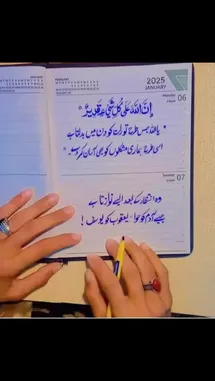 2025
JANUARY
06
إِنَّ اللّٰهَ عَلٰى كُلِّ شَيْءٍ قَدِيْرٌ
یا اللہ جس طرح تو رات کو دن میں بدلتا ہے
اسی طرح ہماری مشکلوں کو بھی آسان کر دے۔
07
وہ انتظار کے بعد ایسے نوازتا ہے
جیسے آدم کو حوا - یعقوب کو یوسف !